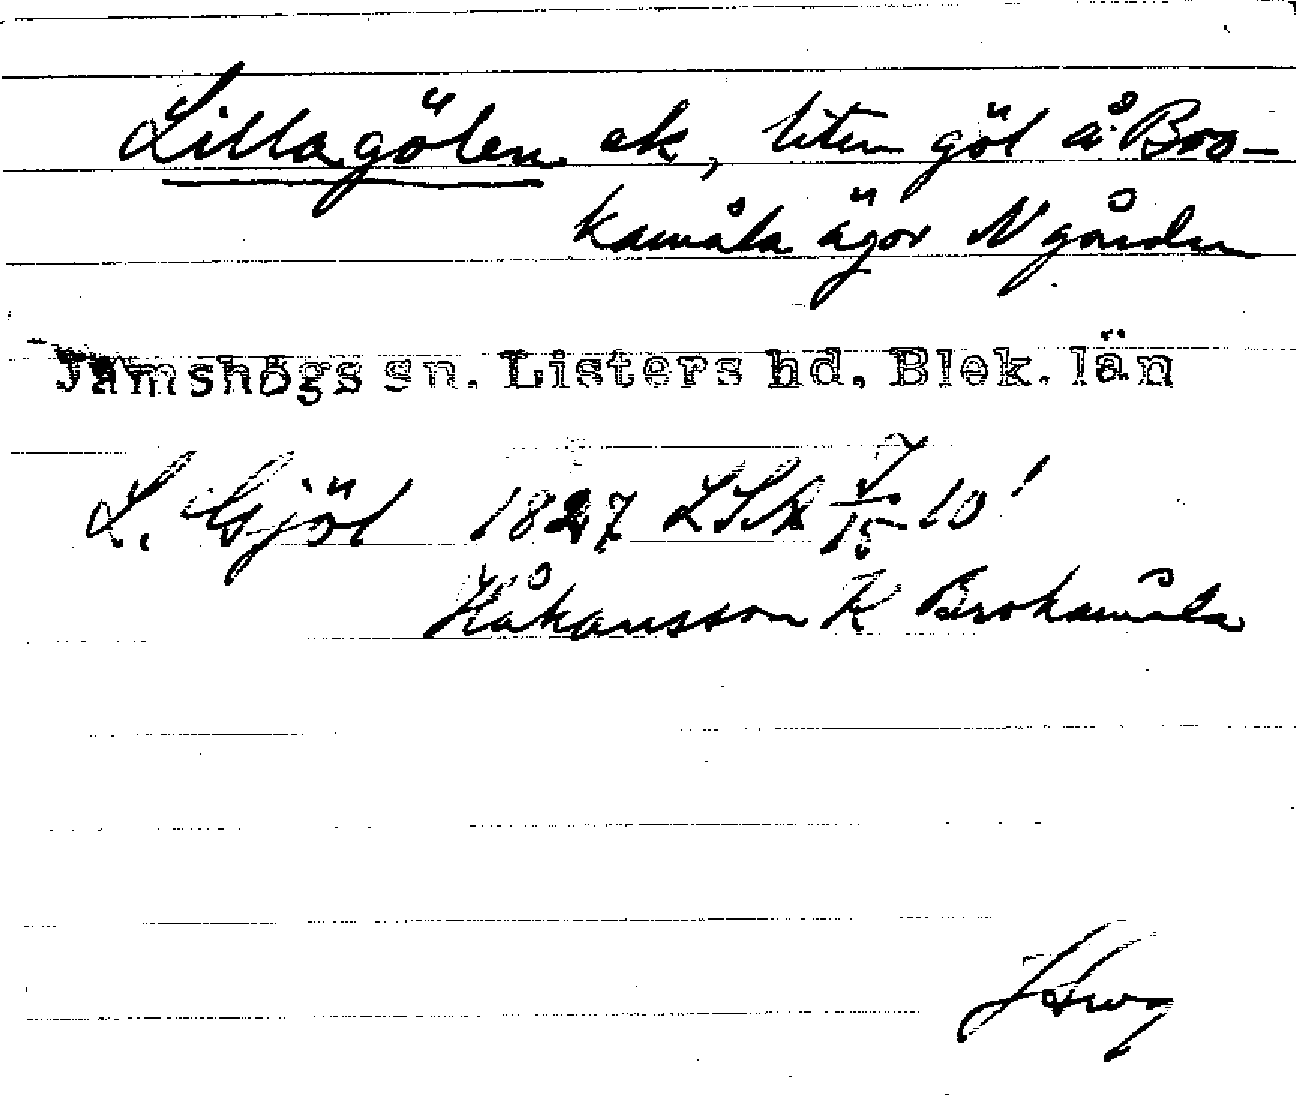 Lillagölen ek, liten göl å Bro-
kamåla ägor N gården
Jämshögs sn. Listers hd. Blek. län
L. Gjöl 1827 LSA 7/15 10'
Håkansson K Brokamåla